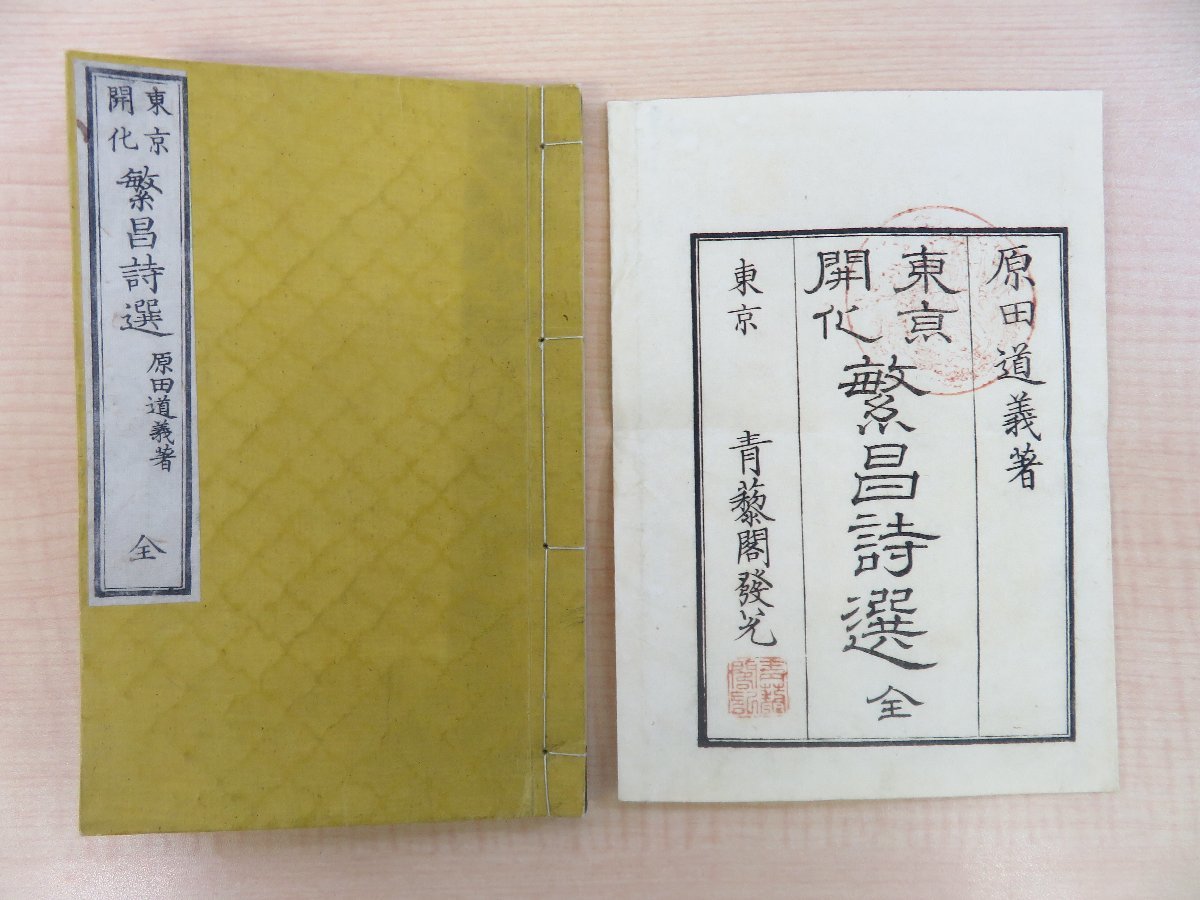 東京
開化
繁昌詩選
原田道義著
全
原田道義著
東京
開化
繁昌詩選 全
東京 青藜閣發兌